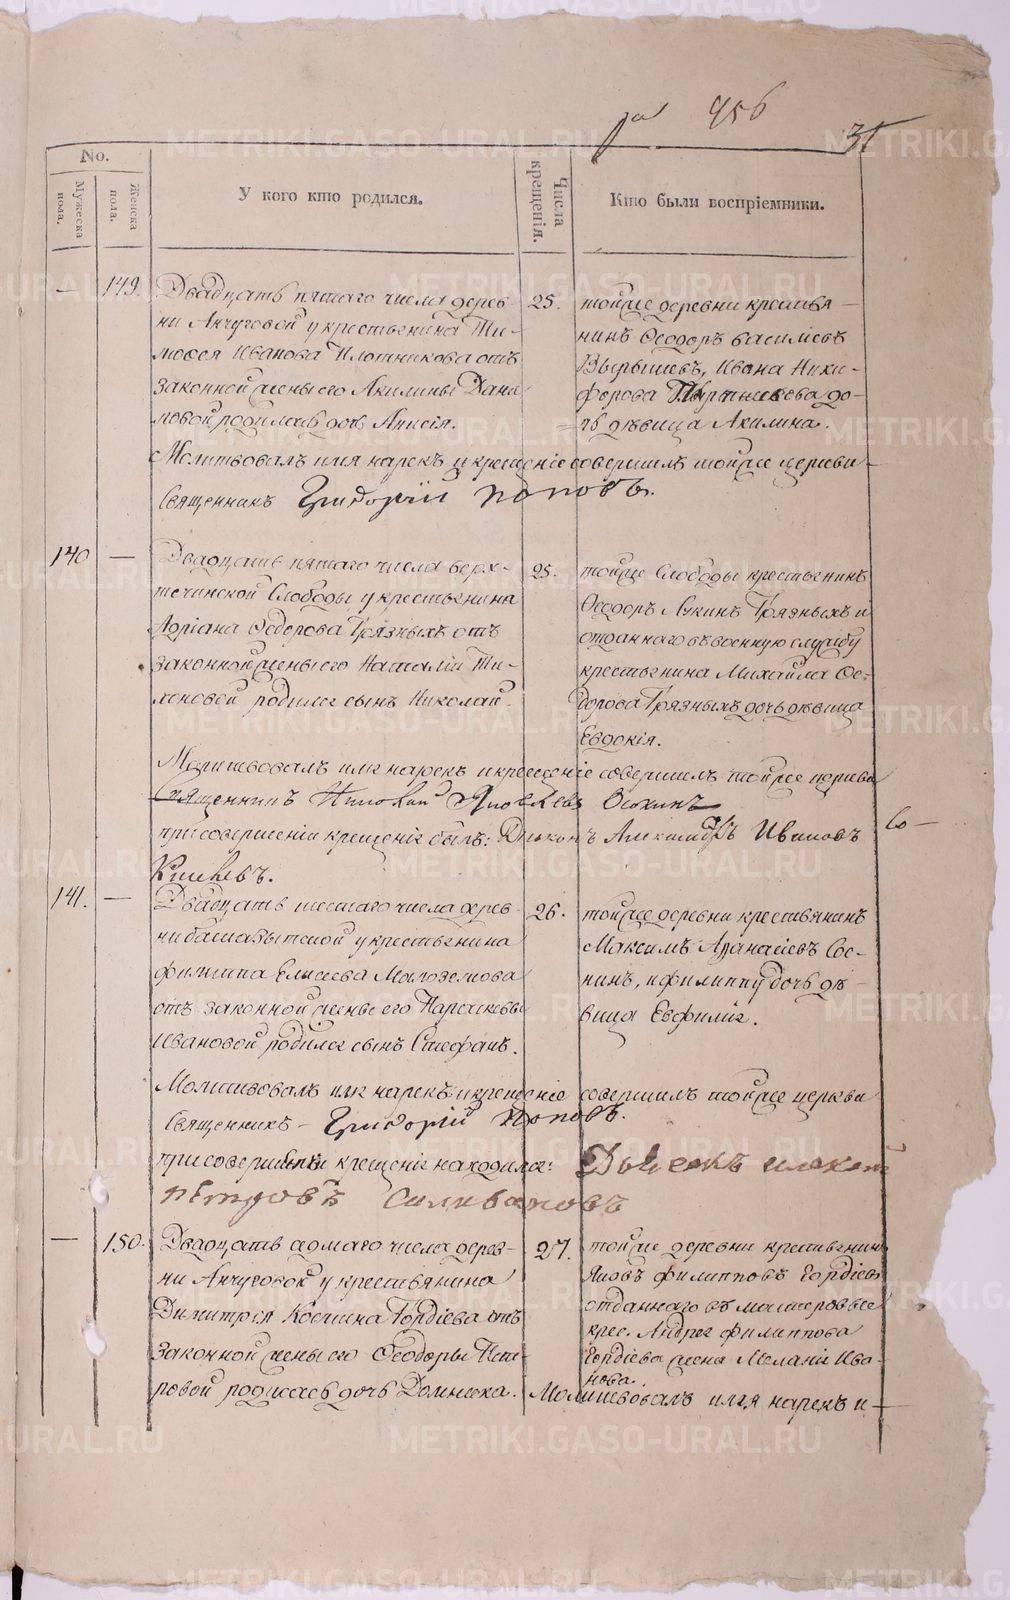 456
31
No.
Мужеска пола.
Женска пола.
У кого кто родился.
Числа крещенія.
Кто были воспріемники.
— 149. Двадцать пятаго числа дерев-
ни Анчуговой у крестьянина Ти-
мофея Иванова Плотникова отъ
законной жены его Акилины Дани
ловой родилась дочь Анисія.
25. тойже деревни крестья-
нинъ Ѳеодоръ Васильевъ
Ивана Ники-
форова до-
чь дѣвица Акилина.
Молитвовалъ имя нарекъ и крещеніе совершилъ тойже церкви
Священникъ Григорій Поповъ.
140 — Двадцать пятаго числа Верх-
теченской Слободы у крестьянина
Адріана Ѳедорова Грязныхъ отъ
законной жены его Наталіи Ти-
хоновой родился сынъ Николай.
25. тойже Слободы крестьянинъ
Ѳеодоръ Лукинъ Грязныхъ и
отданнаго въ военную службу
крестьянина Михайла Ѳе-
дорова Грязныхъ дочь дѣвица
Евдокія.
Молитвовалъ имя нарекъ и крещеніе совершилъ тойже церкви
Священникъ Николай Яковлевъ Осокинъ
при совершеніи крещенія былъ: Дьяконъ Александръ Ивановъ
141. — Двадцать шестаго числа дерев
ни у крестьянина
Филиппа Елисеева Малоземова
отъ законной жены его Парасковьи
Ивановой родился сынъ Стефанъ.
26. тойже деревни крестьянинъ
Максимъ Аѳанасьевъ Сос-
нинъ, и Филиппу дочь дѣ-
вица Евфилія.
Молитвовалъ имя нарекъ и крещеніе совершилъ тойже церкви
Священникъ — Григорій Поповъ.
при совершеніи крещенія находился:
Петровъ Силивановъ
— 150. Двадцать седмаго числа дерев-
ни Анчуговой у крестьянина
Димитрія Космина Гордіева отъ
законной жены его Ѳеодоры Пет-
ровой родилась дочь Домника.
27. тойже деревни крестьянинъ
Яковъ Филипповъ Гордіевъ
отданнаго въ мастеровые
крес. Андрея Филиппова
Гордіева жена Меланія Ива-
нова.
Молитвовалъ имя нарекъ и
METRIKI.GASO-URAL.RU